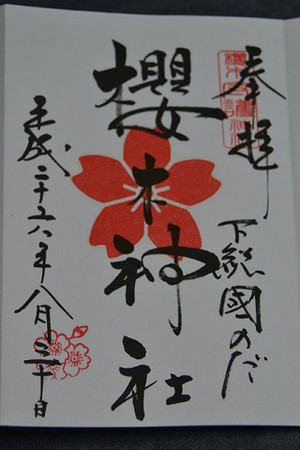 奉拝
下総國のだ
櫻木神社
平成二十六年八月三十日